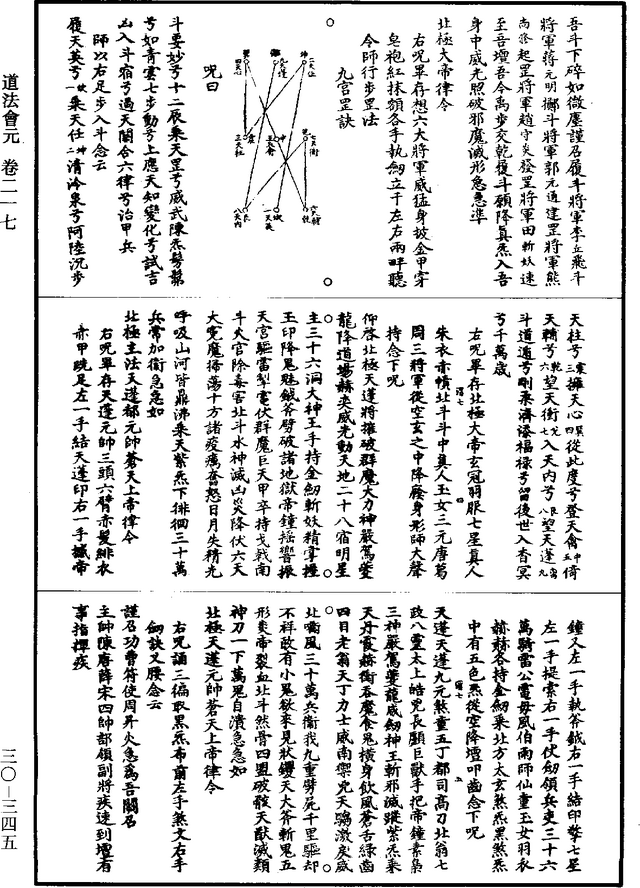 吾斗下碎如微塵謹召履斗將軍李丘飛斗
將軍蔣元明擲斗將軍郭元通建罡將軍熊
尚登起罡將軍趙守炎發罡將軍田斬妖速
至吾壇吾今禹步交乾履斗願降真炁入吾
身中威光照破邪魔滅形急急準
北極大帝律令
右呪畢存想六大將軍威猛身披金甲穿
皂袍紅抹額各手執劍立于左右兩畔聽
令師行步罡法
九宮罡訣
呪曰
斗要妙兮十二辰乘天罡兮威武陳炁髣髴
兮如青雲七步動兮上應天知變化兮試吉
凶入斗宿兮過天關合六律兮治甲兵
師以右足步入斗念云
履天英兮一坎乘天任二坤清泠泉兮阿陸沉步
天柱兮三震擁天心四巽從此度兮登天禽五中倚
天輔兮六乾望天衝七兌入天內兮八艮望天蓬九离
斗道通兮剛柔濟添福祿兮留後世入杳冥
兮千萬歲
右呪畢存北極大帝玄冠羽服七星真人
朱衣赤幘北斗斗中真人玉女三元唐葛
周三將軍從空玄之中降廕身形師大聲
持念下呪
仰啓北極天蓬將摧破群魔大力神嚴駕蒼
龍降道場赫奕威光動天地二十八宿明星
主三十六洞大神王手持金劍斬妖精掌握
王印降鬼魅鉞斧劈破諸地獄帝鐘搖響振
天宮驅雷掣電伏群魔巨天甲卒持戈戟南
斗火官除毒害北斗水神滅凶災降伏六天
大寃魔掃蕩十方諸疫癘奮怒日月失精光
呼吸山河皆鼎沸乘天紫炁下徘徊三十萬
兵常加衛急急如
北極主法天蓬都元帥蒼天上帝律令
右呪畢存天蓬元帥三頭六臂赤髮緋衣
赤甲跣足左一手結天蓬印右一手撼帝
鐘又左一手執斧鉞右一手結印擎七星
左一手提索右一手仗劍領兵吏三十六
萬騎雷公電母風伯雨師仙童玉女羽衣
赫赫各持金劍乘北方太玄煞炁黑煞炁
中有五色炁從空降壇叩齒念下呪
天蓬天蓬九元煞童五丁都司高刁北翁七
政八靈太上皓兇長顱巨獸手把帝鐘素梟
三神嚴駕夔龍威劍神王斬邪滅蹤紫炁乘
天丹霞赫衝吞魔食鬼橫身飲風蒼舌綠齒
四目老翁天丁力士威南禦兇天騶激戾威
北啣風三十萬兵衛我九重辟死千里驅却
不祥敢有小鬼欲來見狀钁天大斧斬鬼五
形炎帝裂血北斗然骨四盟破骸天猷滅類
神刀一下萬鬼自潰急急如
北極天蓬元帥蒼天上帝律令
右呪誦三徧取黑炁布罡左手煞文右手
劍訣叉腰念云
謹召功曹符使周昇火急爲吾關召
主帥陳唐薛宋四帥部領副將疾速到壇有
事指揮疾
道法會元 卷二一七
三〇—三四五